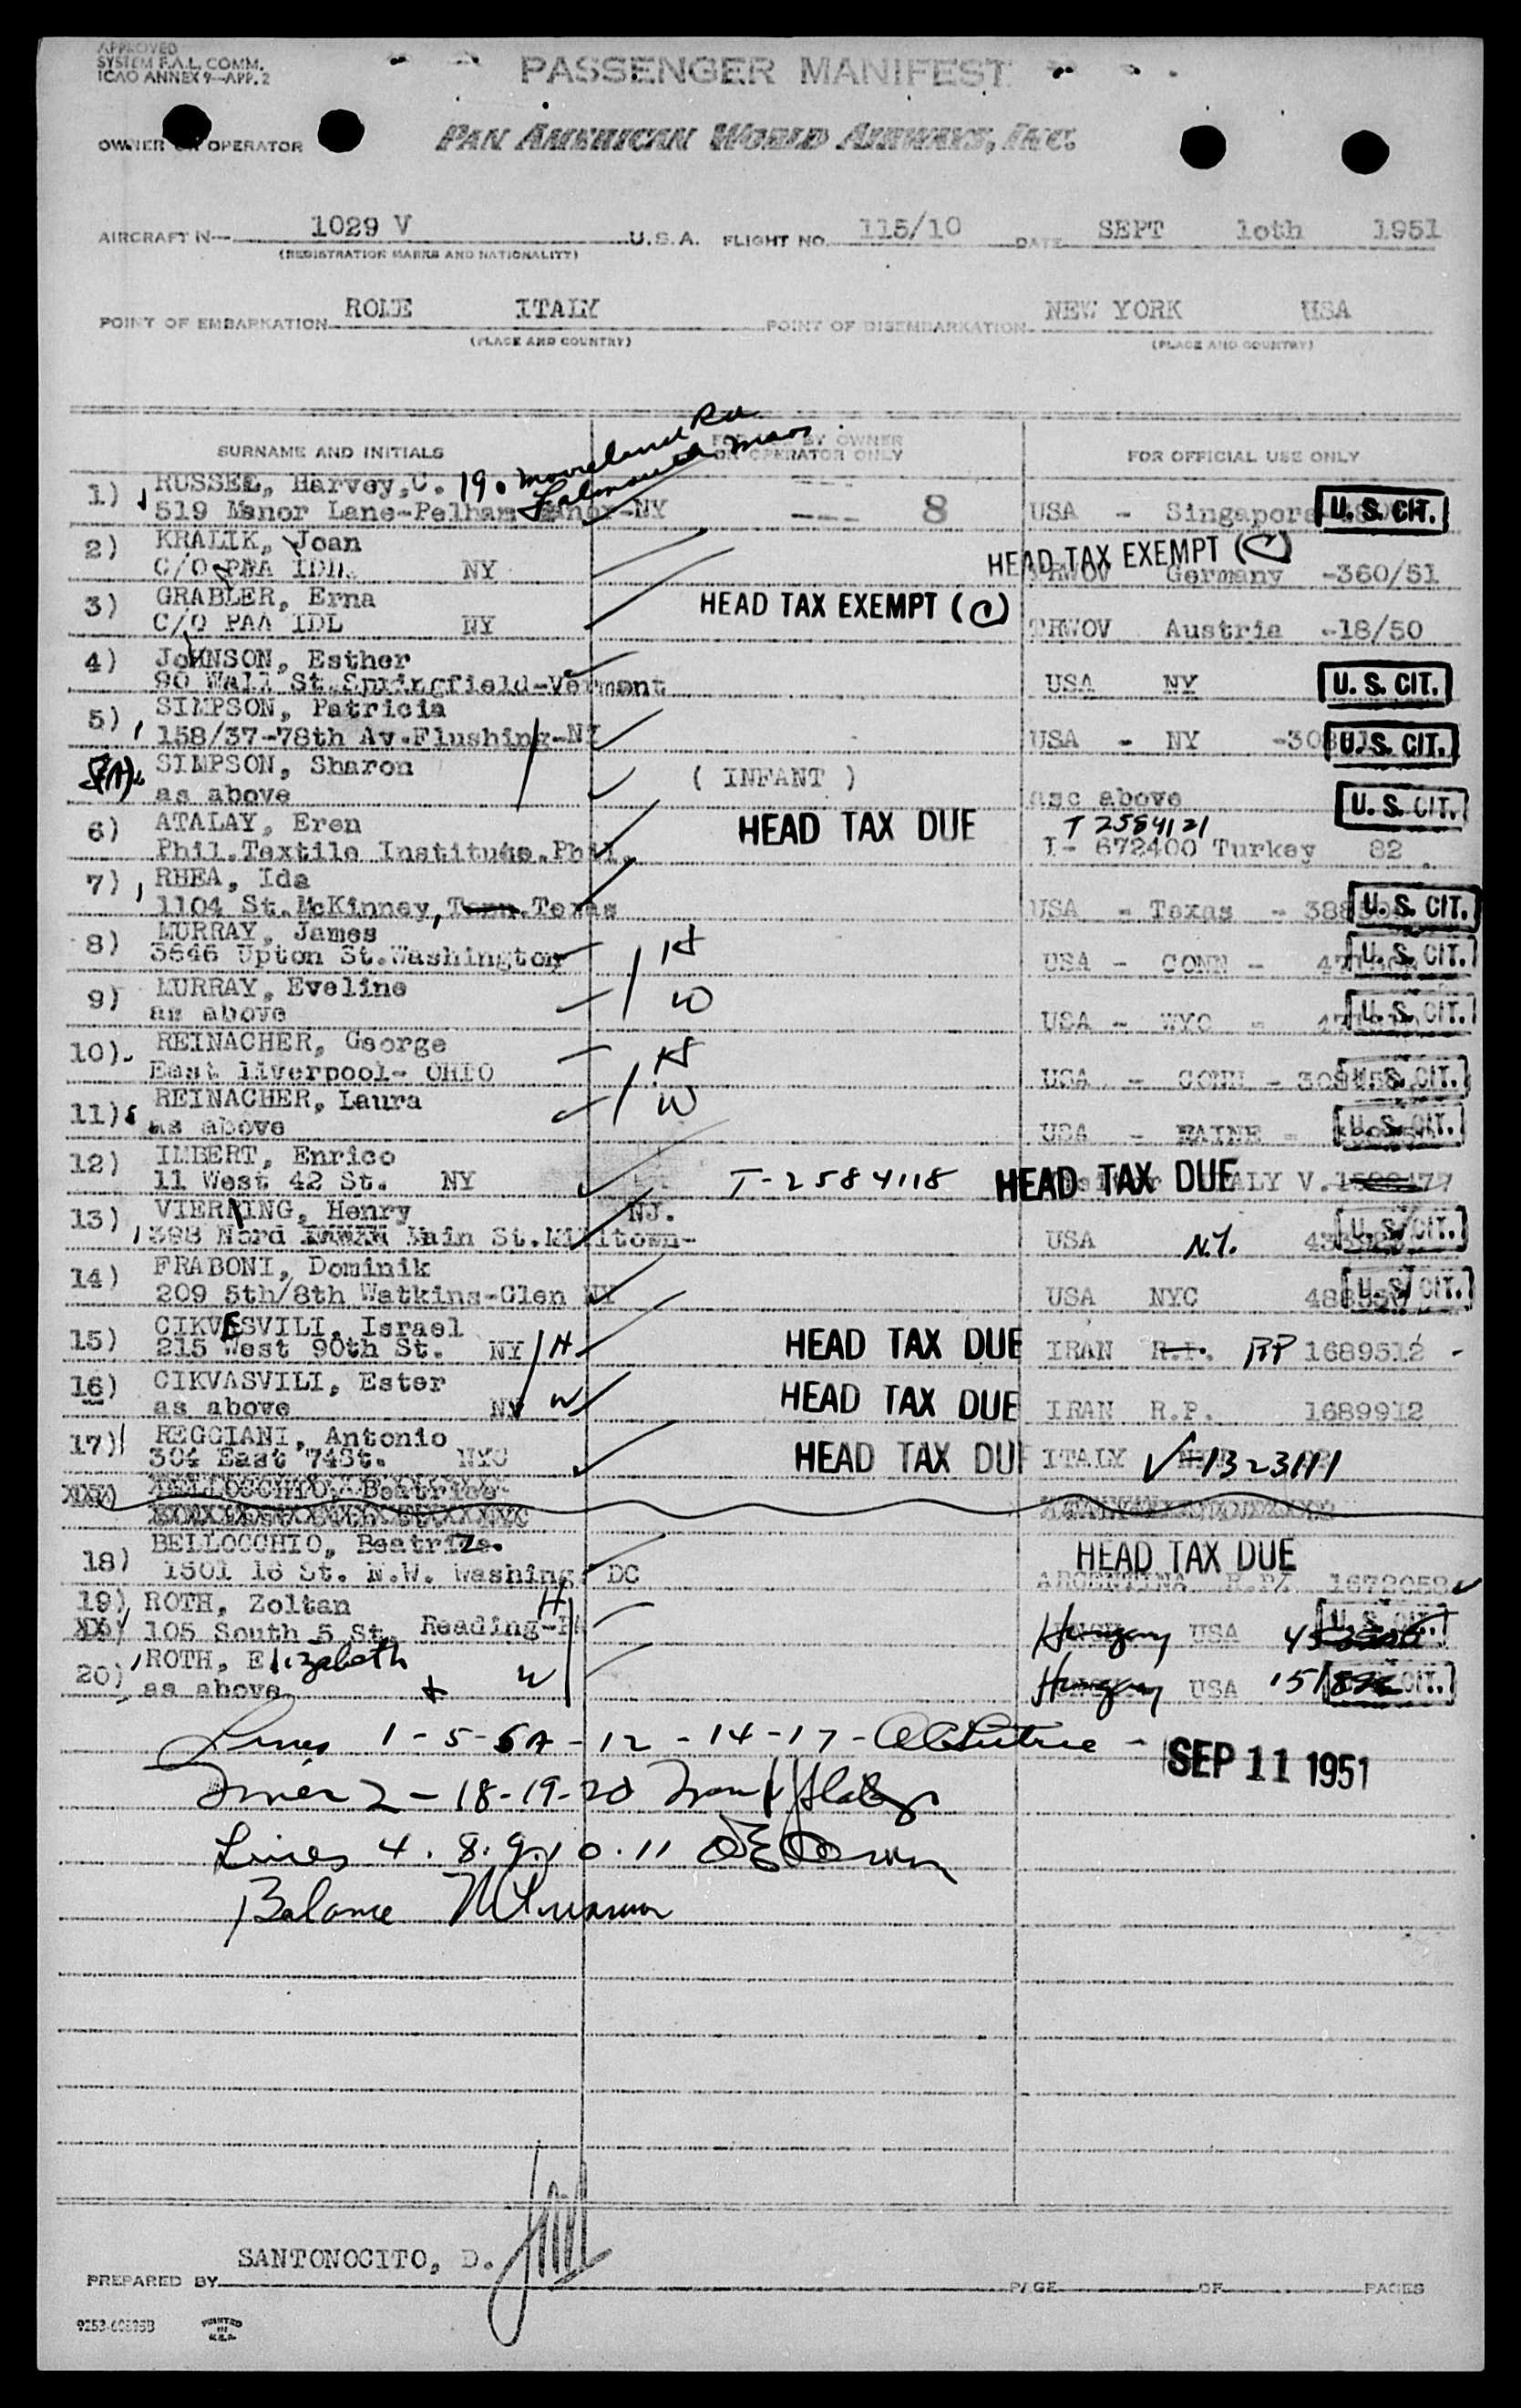 APPROVED
SYSTEM F.A.L. COMM.
ICAO ANNEX 9-APP. 2
PASSENGER MANIFEST
OWNER OR OPERATOR
PAN AMERICAN WORLD AIRWAYS, INC.
AIRCRAFT N 1029 V U.S.A. FLIGHT NO. 115/10 DATE SEPT 10th 1951
(REGISTRATION MARKS AND NATIONALITY)
POINT OF EMBARKATION ROME ITALY POINT OF DISEMBARKATION NEW YORK USA
(PLACE AND COUNTRY) (PLACE AND COUNTRY)
SURNAME AND INITIALS FOR USE BY OWNER OR OPERATOR ONLY FOR OFFICIAL USE ONLY
19. Mooreland Rd
Falmouth Mass.
1) RUSSEL, Harvey, C.
519 Manor Lane-Pelham Manor-NY --- 8 USA - Singapore U. S. CIT.
2) KRALIK, Joan HEAD TAX EXEMPT (C)
C/O PAA IDL NY Germany -360/51
3) GRABLER, Erna HEAD TAX EXEMPT (C)
C/O PAA IDL NY TRWOV Austria -18/50
4) JOHNSON, Esther
90 Wall St. Springfield-Vermont USA NY U. S. CIT.
5) SIMPSON, Patricia
158/37-78th Av. Flushing-NY USA - NY U. S. CIT.
5A) SIMPSON, Sharon ( INFANT )
as above asc above U. S. CIT.
6) ATALAY, Eren HEAD TAX DUE T 2584121
Phil. Textile Institute. Phil. I- 672400 Turkey 82
7) RHEA, Ida
1104 St. McKinney, Texas USA - Texas - U. S. CIT.
8) MURRAY, James H
3646 Upton St. Washington USA - CONN - U. S. CIT.
9) MURRAY, Eveline W
as above USA - WYO - U. S. CIT.
10) REINACHER, George H
East Liverpool- OHIO USA - CONN - U. S. CIT.
11) REINACHER, Laura W
as above USA - MAINE - U. S. CIT.
12) IMBERT, Enrico
11 West 42 St. NY T-2584118 HEAD TAX DUE ITALY V.
13) VIERLING, Henry NJ.
398 Nord Main St. Milltown- USA N.Y. U. S. CIT.
14) FRABONI, Dominik
209 5th/8th Watkins-Glen NY USA NYC U. S. CIT.
15) CIKVESVILI, Israel
215 West 90th St. NY H HEAD TAX DUE IRAN R.P. RP 1689512 -
16) CIKVASVILI, Ester
as above NY W HEAD TAX DUE IRAN R.P. 1689912
17) REGGIANI, Antonio
304 East 74St. NYC HEAD TAX DUE ITALY V-1323111
BELLOCCHIO, Beatrice
18) BELLOCCHIO, Beatriz. HEAD TAX DUE
1501 16 St. N.W. Washing. DC ARGENTINA R.P. 1672058
19) ROTH, Zoltan H
105 South 5 St. Reading-PA Hungary USA U. S. CIT.
20) ROTH, Elizabeth W
as above Hungary USA CIT.
Lines 1-5-5A-12-14-17-
SEP 11 1951
Lines 2-18-19-20
Lines 4. 8. 9. 10. 11
Balance
SANTONOCITO, D.
PREPARED BY PAGE OF PAGES
PRINTED
IN
U.S.A.